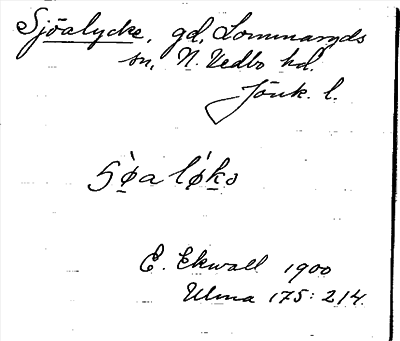 Sjöalycke, gd, Lommaryds
sn, N. Vedbo hd.
Jönk. l.
E. Ekwall 1900
Ulma 175: 214.